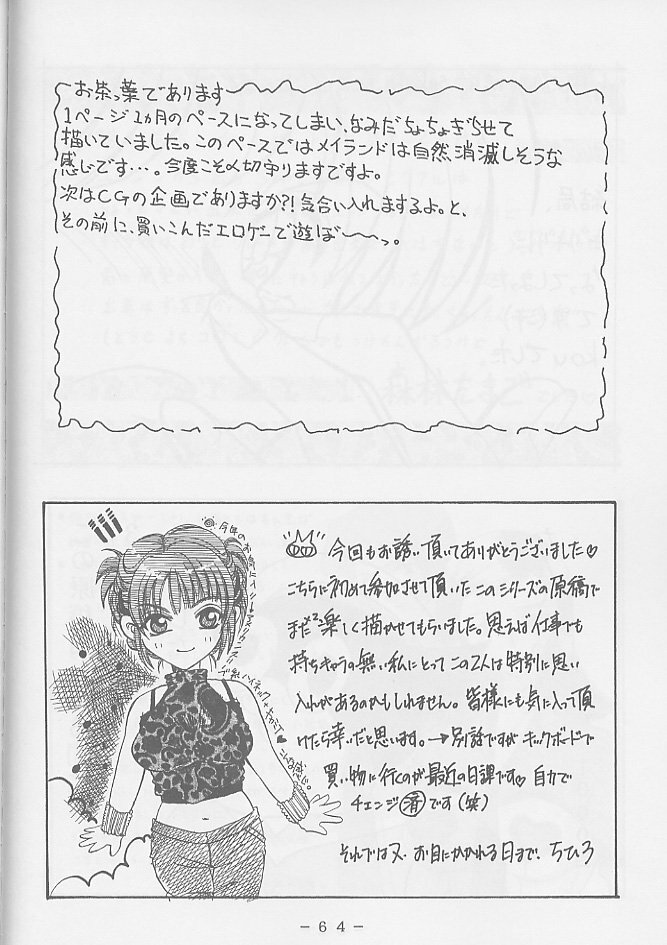 お茶っ葉であります
1ページ1ヵ月のペースになってしまい、なみだちょちょぎらせて
描いていました。このペースではメイランドは自然消滅しそうな
感じです…。今度こそ〆切守りますですよ。
次はCGの企画でありますか?!気合い入れまするよ。と、
その前に、買いこんだエロゲーで遊ぼ〜〜っ。
今回もお誘い頂いてありがとうございました♡
こちらに初めて参加させて頂いたこのシリーズの原稿で
また楽しく描かせてもらいました。思えば仕事でも
持ちキャラの無い私にとってこの2人は特別に思い
入れがあるのかもしれません。皆様にも気に入って頂
けたら幸いだと思います。→別話ですがキックボードで
買い物に行くのが最近の日課です♡自力で
チェンジ済です(笑)
それでは又、お目にかかれる日まで、ちひろ
こんな感じ。
- 64 -